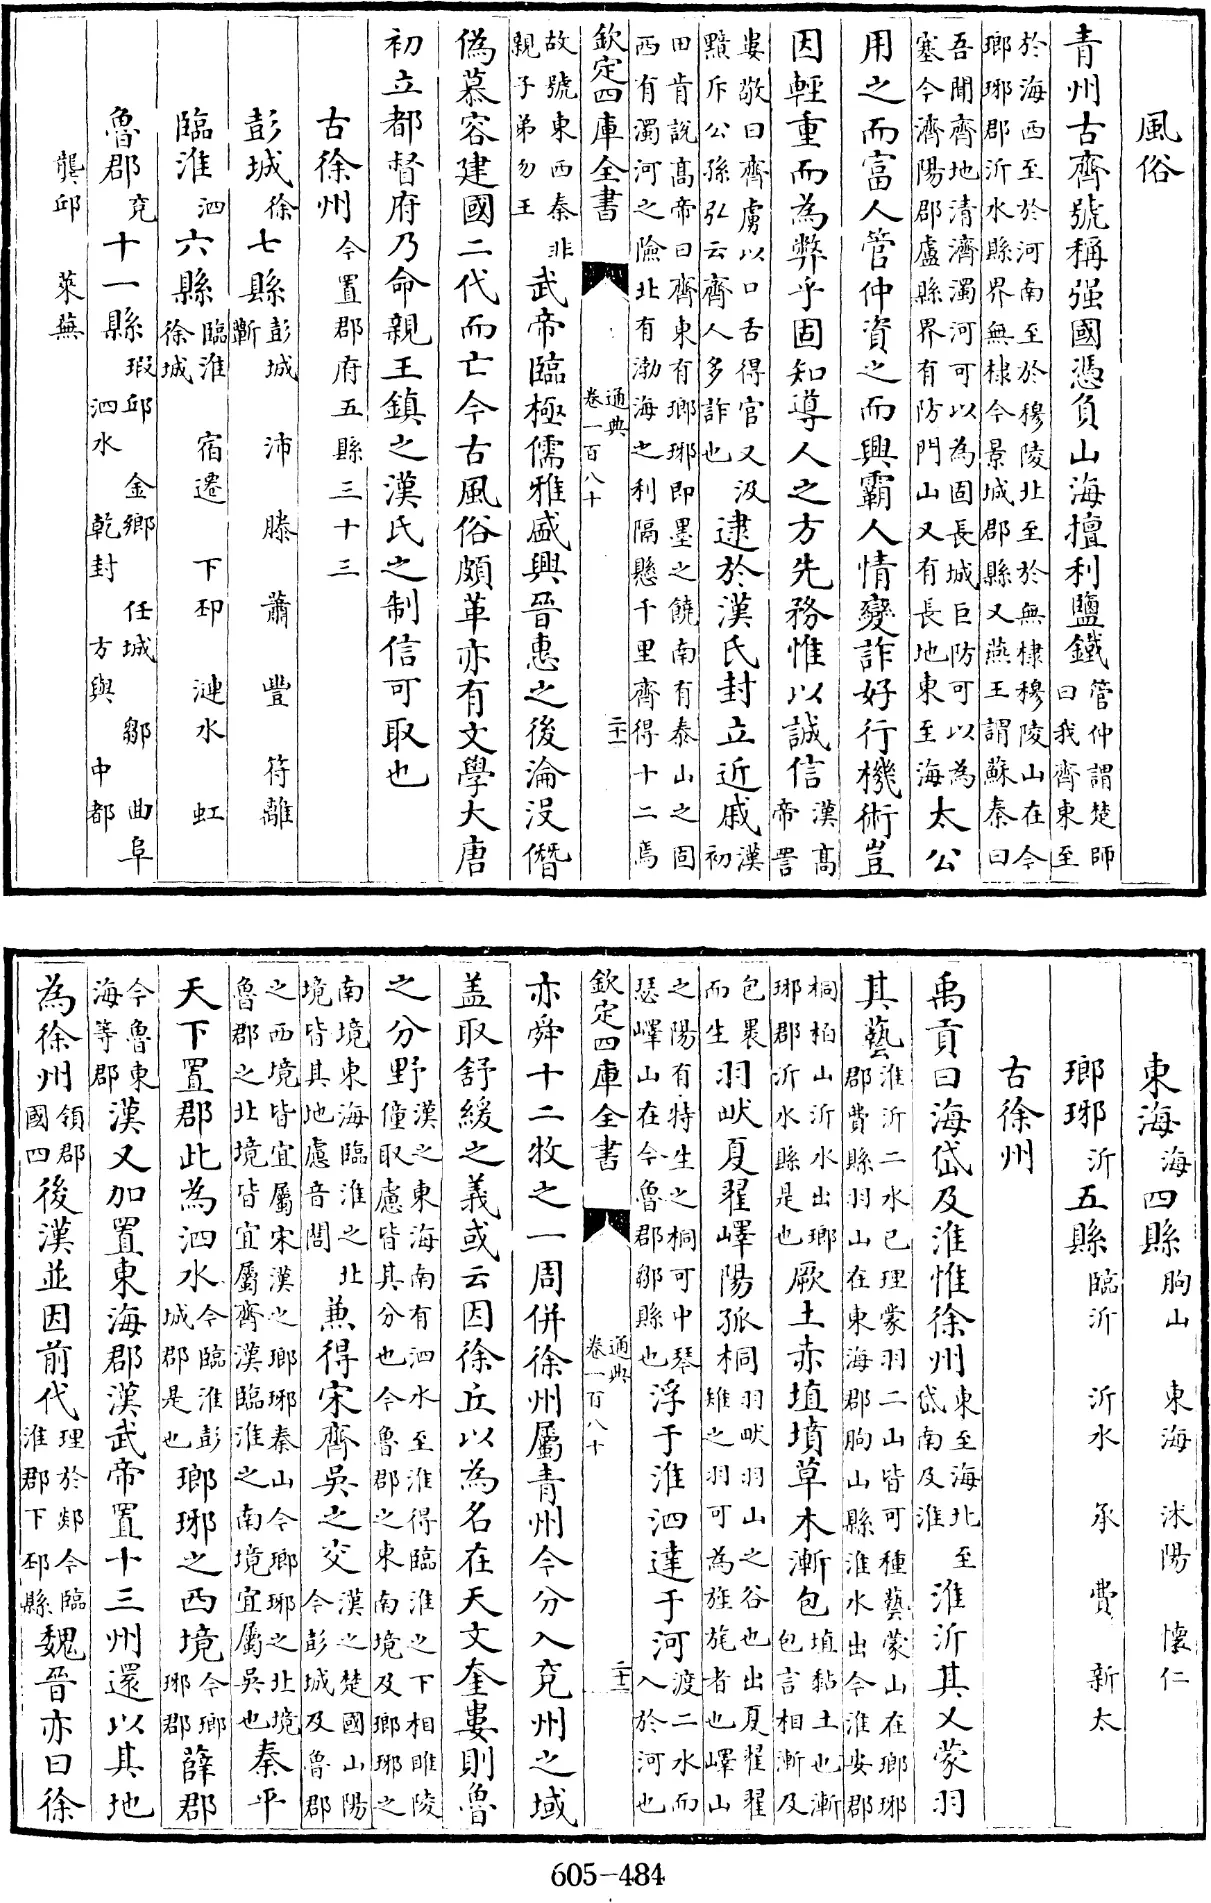 風俗
青州古齊號稱强國憑負山海擅利鹽鐵管仲謂楚師曰我齊東至
於海西至於河南至於穆陵北至於無棣穆陵山在今瑯琊郡沂水縣界無棣今景城郡縣又燕王謂蘇秦曰
吾聞齊地清濟濁河可以為固長城巨防可以為塞今濟陽郡盧縣界有防門山又有長地東至海太公
用之而富人管仲資之而興霸人情變詐好行機術豈
因輕重而為弊乎固知導人之方先務惟以誠信漢高帝詈
婁敬曰齊虜以口舌得官又汲黯斥公孫弘云齊人多詐也逮於漢氏封立近戚漢初
田肯說高帝曰齊東有瑯琊即墨之饒南有泰山之固西有濁河之險北有渤海之利隔懸千里齊得十二焉
欽定四庫全書 通典卷一百八十 二十一
故號東西秦非親子弟勿王武帝臨極儒雅盛興晉惠之後淪沒僭
偽慕容建國二代而亡今古風俗頗革亦有文學大唐
初立都督府乃命親王鎮之漢氏之制信可取也
古徐州今置郡府五縣三十三
彭城徐七縣彭城 沛 滕 蕭 豐 符離 蘄
臨淮泗六縣臨淮 宿遷 下邳 漣水 虹 徐城
魯郡兗十一縣瑕邱 金鄉 任城 鄒 曲阜 泗水 乾封 方與 中都
龔邱 萊蕪
東海海四縣朐山 東海 沭陽 懷仁
瑯琊沂五縣臨沂 沂水 承 費 新太
古徐州
禹貢曰海岱及淮惟徐州東至海北至岱南及淮淮沂其乂蒙羽
其藝淮沂二水已理蒙羽二山皆可種藝蒙山在瑯琊郡費縣羽山在東海郡朐山縣淮水出今淮安郡
桐柏山沂水出瑯琊郡沂水縣是也厥土赤埴墳草木漸包埴黏土也漸包言相漸及
包裹而生羽畎夏翟嶧陽孤桐羽畎羽山之谷也出夏翟翟雉之羽可為旌旄者也嶧山
之陽有特生之桐可中琴瑟嶧山在今魯郡鄒縣也浮于淮泗達于河渡二水而入於河也
欽定四庫全書 通典卷一百八十 二十二
亦舜十二牧之一周併徐州屬青州今分入兗州之域
盖取舒緩之義或云因徐丘以為名在天文奎婁則魯
之分野漢之東海南有泗水至淮得臨淮之下相睢陵僮取慮皆其分也今魯郡之東南境及瑯琊之
南境東海臨淮之北境皆其地慮音閭兼得宋齊吳之交漢之楚國山陽今彭城及魯郡
之西境皆宜屬宋漢之瑯琊秦山今瑯琊之北境魯郡之北境皆宜屬齊漢臨淮之南境宜屬吳也秦平
天下置郡此為泗水今臨淮彭城郡是也瑯琊之西境今瑯琊郡薛郡
今魯東海等郡漢又加置東海郡漢武帝置十三州還以其地
為徐州領郡國四後漢並因前代理於郯今臨淮郡下邳縣魏晉亦曰徐
605-484